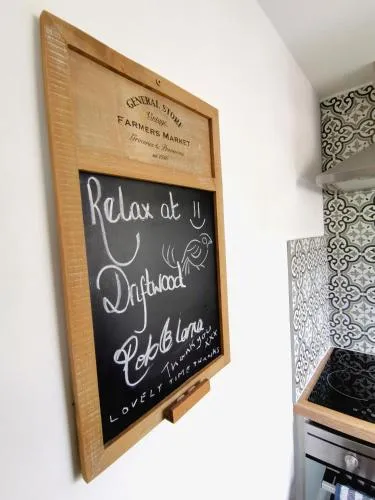 GENERAL STORE
Vintage
FARMERS MARKET
Groceries & Provisions
Relax at
Driftwood
Rob & Lorna
Thank you
xxx
LOVELY TIME THANKS